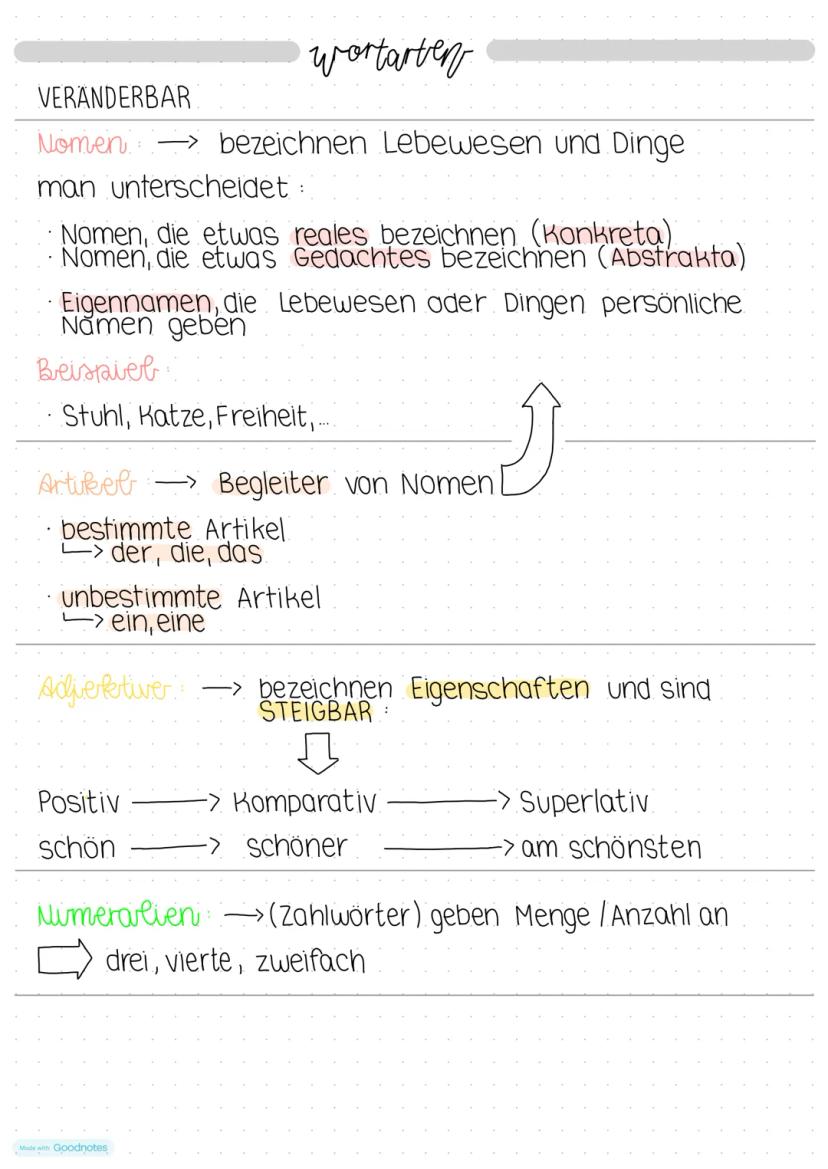 wortarten
VERÄNDERBAR
Nomen: → bezeichnen Lebewesen und Dinge
man unterscheidet:
· Nomen, die etwas reales bezeichnen (Konkreta)
· Nomen, die etwas Gedachtes bezeichnen (Abstrakta)
· Eigennamen, die Lebewesen oder Dingen persönliche
Namen geben
Beispiel:
· Stuhl, Katze, Freiheit,...
Artikel → Begleiter von Nomen
· bestimmte Artikel
↳ der, die, das
· unbestimmte Artikel
↳ ein, eine
Adjektive: → bezeichnen Eigenschaften und sind
STEIGBAR:
Positiv → Komparativ → Superlativ
schön → schöner → am schönsten
Numeralien: → (Zahlwörter) geben Menge / Anzahl an
⇨ drei, vierte, zweifach
Made with Goodnotes